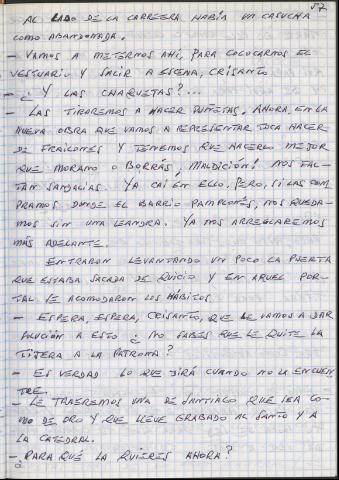 57
AL LADO DE LA CARRETERA HABÍA UN CASUCHA
COMO ABANDONADA.
- VAMOS A METERNOS AHÍ, PARA COLOCARNOS EL
VESTUARIO Y SALIR A ESCENA, CRISANTO
- ¿ Y LAS CHAQUETAS?...
- LAS TIRAREMOS A HACER PUÑETAS. AHORA, EN LA
NUEVA OBRA QUE VAMOS A REPRESENTAR TOCA HACER
DE FRAILONES Y TENEMOS QUE HACERLO MEJOR
QUE MORANO O BORRÁS, MALDICIÓN! NOS FAL-
TAN SANDALIAS. YA CAÍ EN ELLO. PERO, SI LAS COM
PRAMOS DONDE EL BARRIO PAMPLONÉS, NOS QUEDA-
MOS SIN UNA LEANDRA. YA NOS ARREGLAREMOS
MÁS ADELANTE.
ENTRARON LEVANTANDO UN POCO LA PUERTA
QUE ESTABA SACADA DE QUICIO Y EN AQUEL POR-
TAL SE ACOMODARON LOS HÁBITOS.
- ESPERA, ESPERA, CRISANTO, QUE LE VAMOS A DAR
SOLUCIÓN A ESTO ¿ NO SABES QUE LE QUITE LA
TIJERA A LA PATRONA?
- ES VERDAD LO QUE DIRÁ CUANDO NO LA ENCUEN
TRE.
- LE TRAEREMOS UNA DE SANTIAGO QUE SEA CO-
MO DE ORO Y QUE LLEVE GRABADO AL SANTO Y A
LA CATEDRAL.
- PARA QUÉ LA QUIERES AHORA?